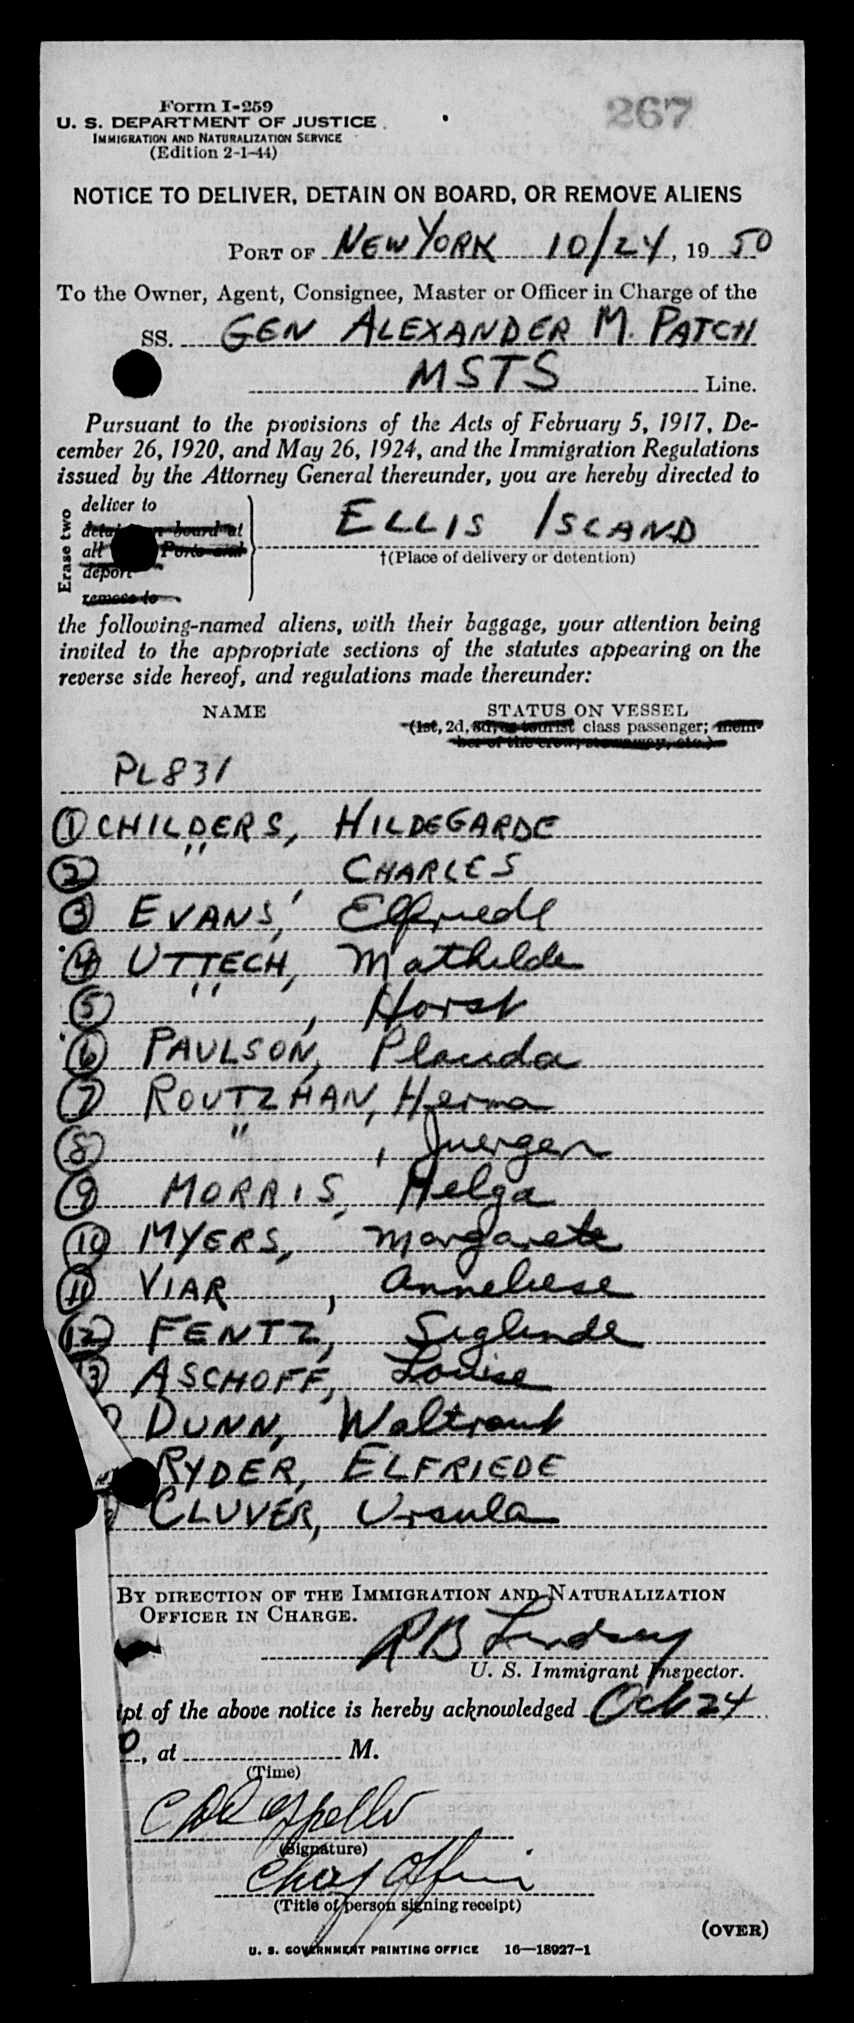 Form I-259
267
U. S. DEPARTMENT OF JUSTICE
IMMIGRATION AND NATURALIZATION SERVICE
(Edition 2-1-44)
NOTICE TO DELIVER, DETAIN ON BOARD, OR REMOVE ALIENS
PORT OF NEW YORK 10/24, 19 50
To the Owner, Agent, Consignee, Master or Officer in Charge of the
SS. GEN ALEXANDER M. PATCH
MSTS Line.
Pursuant to the provisions of the Acts of February 5, 1917, De-
cember 26, 1920, and May 26, 1924, and the Immigration Regulations
issued by the Attorney General thereunder, you are hereby directed to
Erase two
deliver to
on board at
all Ports and
deport
remove to
ELLIS ISLAND
†(Place of delivery or detention)
the following-named aliens, with their baggage, your attention being
invited to the appropriate sections of the statutes appearing on the
reverse side hereof, and regulations made thereunder:
NAME STATUS ON VESSEL
(1st, 2d, 3d, or tourist class passenger; mem-
ber of the crew, stowaway, etc.)
PL831
1 CHILDERS, HILDEGARDE
2 " CHARLES
3 EVANS, Elfriede
4 UTTECH, Mathilde
5 " , Horst
6 PAULSON, Placida
7 ROUTZHAN, Herma
8 " , Juergen
9 MORRIS, Helga
10 MYERS, Margarete
11 VIAR, Anneliese
12 FENTZ, Siglinde
3 ASCHOFF, Louise
DUNN, Waltraut
RYDER, ELFRIEDE
CLUVER, Ursula
BY DIRECTION OF THE IMMIGRATION AND NATURALIZATION
OFFICER IN CHARGE.
RB Lindsey
U. S. Immigrant Inspector.
ipt of the above notice is hereby acknowledged Oct 24
0, at M.
(Time)
(Signature)
(Title of person signing receipt)
(OVER)
U. S. GOVERNMENT PRINTING OFFICE 16—18927-1